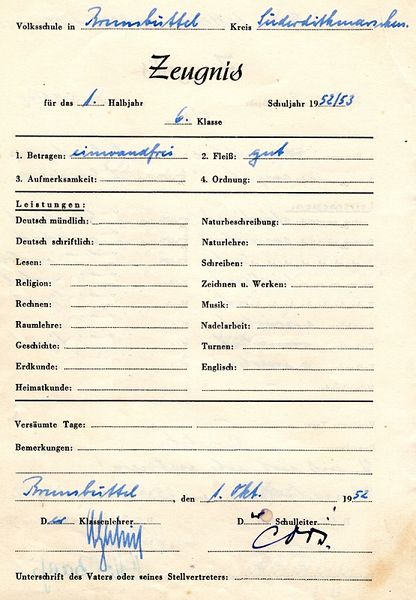 Volksschule in Brunsbüttel Kreis Süderdithmarschen.
Zeugnis
für das 1. Halbjahr Schuljahr 1952/53
6. Klasse
1. Betragen: einwandfrei 2. Fleiß: gut
3. Aufmerksamkeit: 4. Ordnung:
Leistungen:
Deutsch mündlich: Naturbeschreibung:
Deutsch schriftlich: Naturlehre:
Lesen: Schreiben:
Religion: Zeichnen u. Werken:
Rechnen: Musik:
Raumlehre: Nadelarbeit:
Geschichte: Turnen:
Erdkunde: Englisch:
Heimatkunde:
Versäumte Tage:
Bemerkungen:
Brunsbüttel, den 1. Okt. 1952
Der Klassenlehrer Der Schulleiter
Unterschrift des Vaters oder seines Stellvertreters: